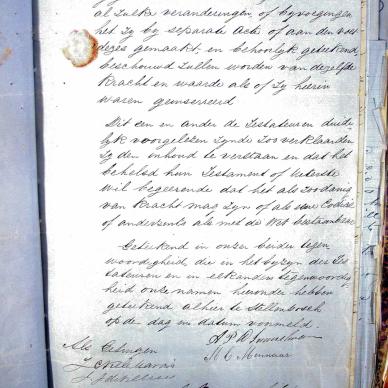 al zulke veranderingen, of byvoegingen
het zy by separate Acte of aan den voet
dezes gemaakt, en behoorlyk geteekend
beschouwd zullen worden van dezelfde
kracht en waarde als of zy hierin
waren geinsereerd
Dit een en ander de Testateuren duide
lyk voorgelezen zynde zoo verklaarden
zy den inhoud te verstaan en dat het
behelsd hun Testament of uiterste
wil begeerende dat het als zoodanig
van kracht mag zyn of als eene Codicil
of anderzints als met de Wet bestaanbaar
Geteekend in onzer beider tegen
woordigheid, die in het byzyn der Tes
tateuren en in elkanders tegenwoordig
heid onze namen hieronder hebben
geteekend alhier te Stellenbosch
op de dag en datum voormeld.
Als Getuigen